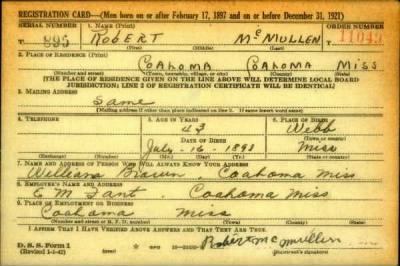 REGISTRATION CARD—(Men born on or after February 17, 1897 and on or before December 31, 1921)
SERIAL NUMBER 1. NAME (Print) ORDER NUMBER
895 ROBERT McMULLEN 11045
(First) (Middle) (Last)
2. PLACE OF RESIDENCE (Print)
COAHOMA COAHOMA MISS
(Number and street) (Town, township, village, or city) (County) (State)
[THE PLACE OF RESIDENCE GIVEN ON THE LINE ABOVE WILL DETERMINE LOCAL BOARD
JURISDICTION; LINE 2 OF REGISTRATION CERTIFICATE WILL BE IDENTICAL]
3. MAILING ADDRESS
Same
[Mailing address if other than place indicated on line 2. If same insert word same]
4. TELEPHONE 5. AGE IN YEARS 6. PLACE OF BIRTH
43 Webb
DATE OF BIRTH (Town or county)
July - 16 - 1898 Miss
(Exchange) (Number) (Mo.) (Day) (Yr.) (State or country)
7. NAME AND ADDRESS OF PERSON WHO WILL ALWAYS KNOW YOUR ADDRESS
William Brown, Coahoma Miss
8. EMPLOYER'S NAME AND ADDRESS
C M Fant Coahoma Miss
9. PLACE OF EMPLOYMENT OR BUSINESS
Coahoma Miss
(Number and street or R. F. D. number) (Town) (County) (State)
I AFFIRM THAT I HAVE VERIFIED ABOVE ANSWERS AND THAT THEY ARE TRUE.
D. S. S. Form 1
(Revised 1-1-42)
Robert McMullen
(Registrant's signature)